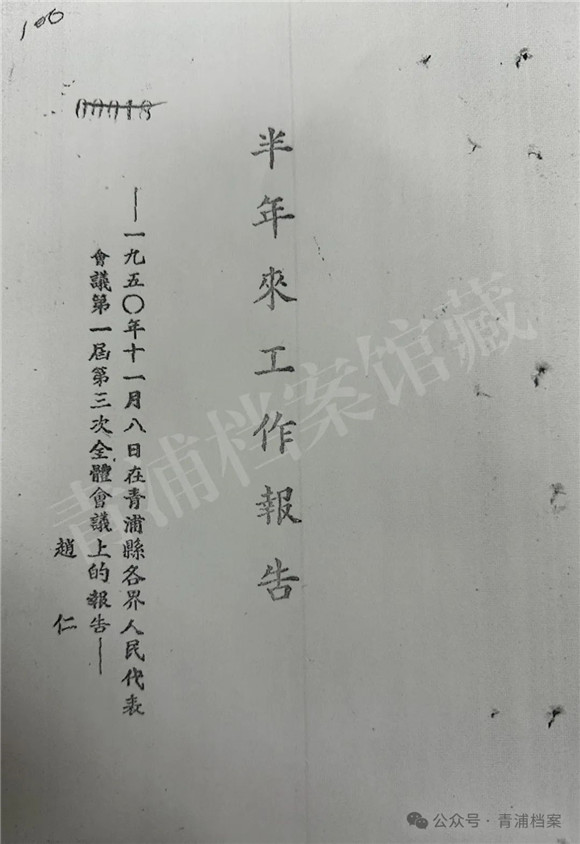 100
00018
半年來工作報告
——一九五〇年十一月八日在青浦縣各界人民代表
會議第一屆第三次全體會議上的報告——
趙仁
青浦档案馆藏
公众号·青浦档案